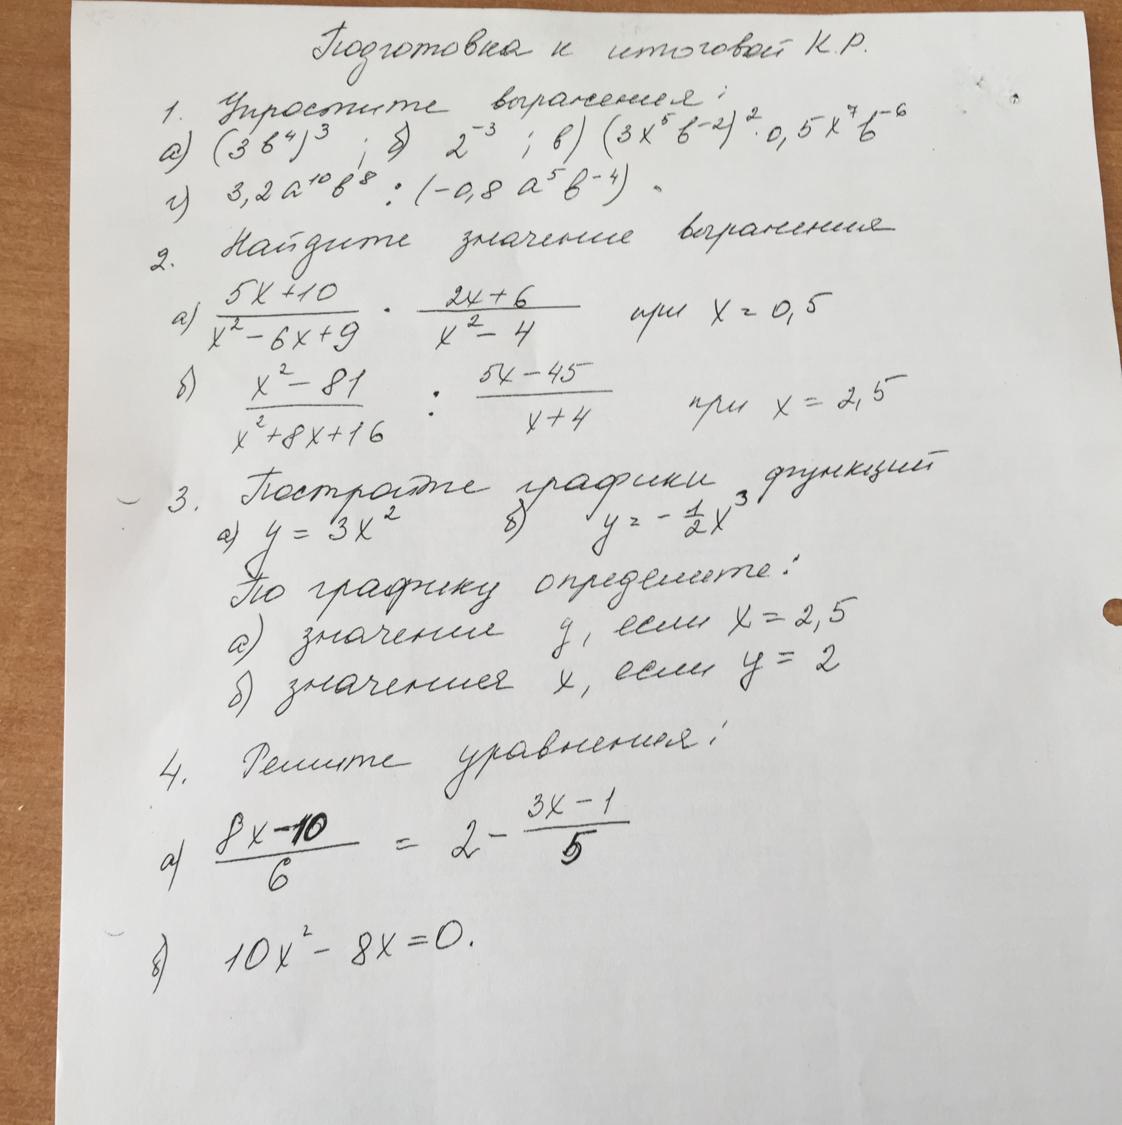 Подготовка к итоговой К.Р.
1. Упростите выражения:
а) (3b⁴)³ ; б) 2⁻³ ; в) (3x⁵b⁻²)² · 0,5x⁷b⁻⁶
г) 3,2a¹⁰b⁸ : (-0,8a⁵b⁻⁴).
2. Найдите значение выражения
а) (5x+10)/(x²-6x+9) · (2x+6)/(x²-4) при x=0,5
б) (x²-81)/(x²+8x+16) : (5x-45)/(x+4) при x=2,5
3. Постройте графики функций
а) y=3x² б) y=-1/2x³
По графику определите:
а) значение y, если x=2,5
б) значения x, если y=2
4. Решите уравнения:
а) (8x-10)/6 = 2 - (3x-1)/5
б) 10x²-8x=0.